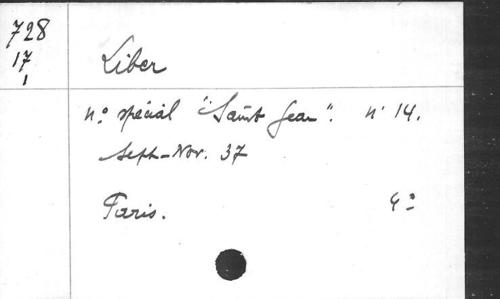 728
17
1
Liber
nº spécial "Saint Jean". nº 14.
Sept-Nov. 37
Paris. 4º